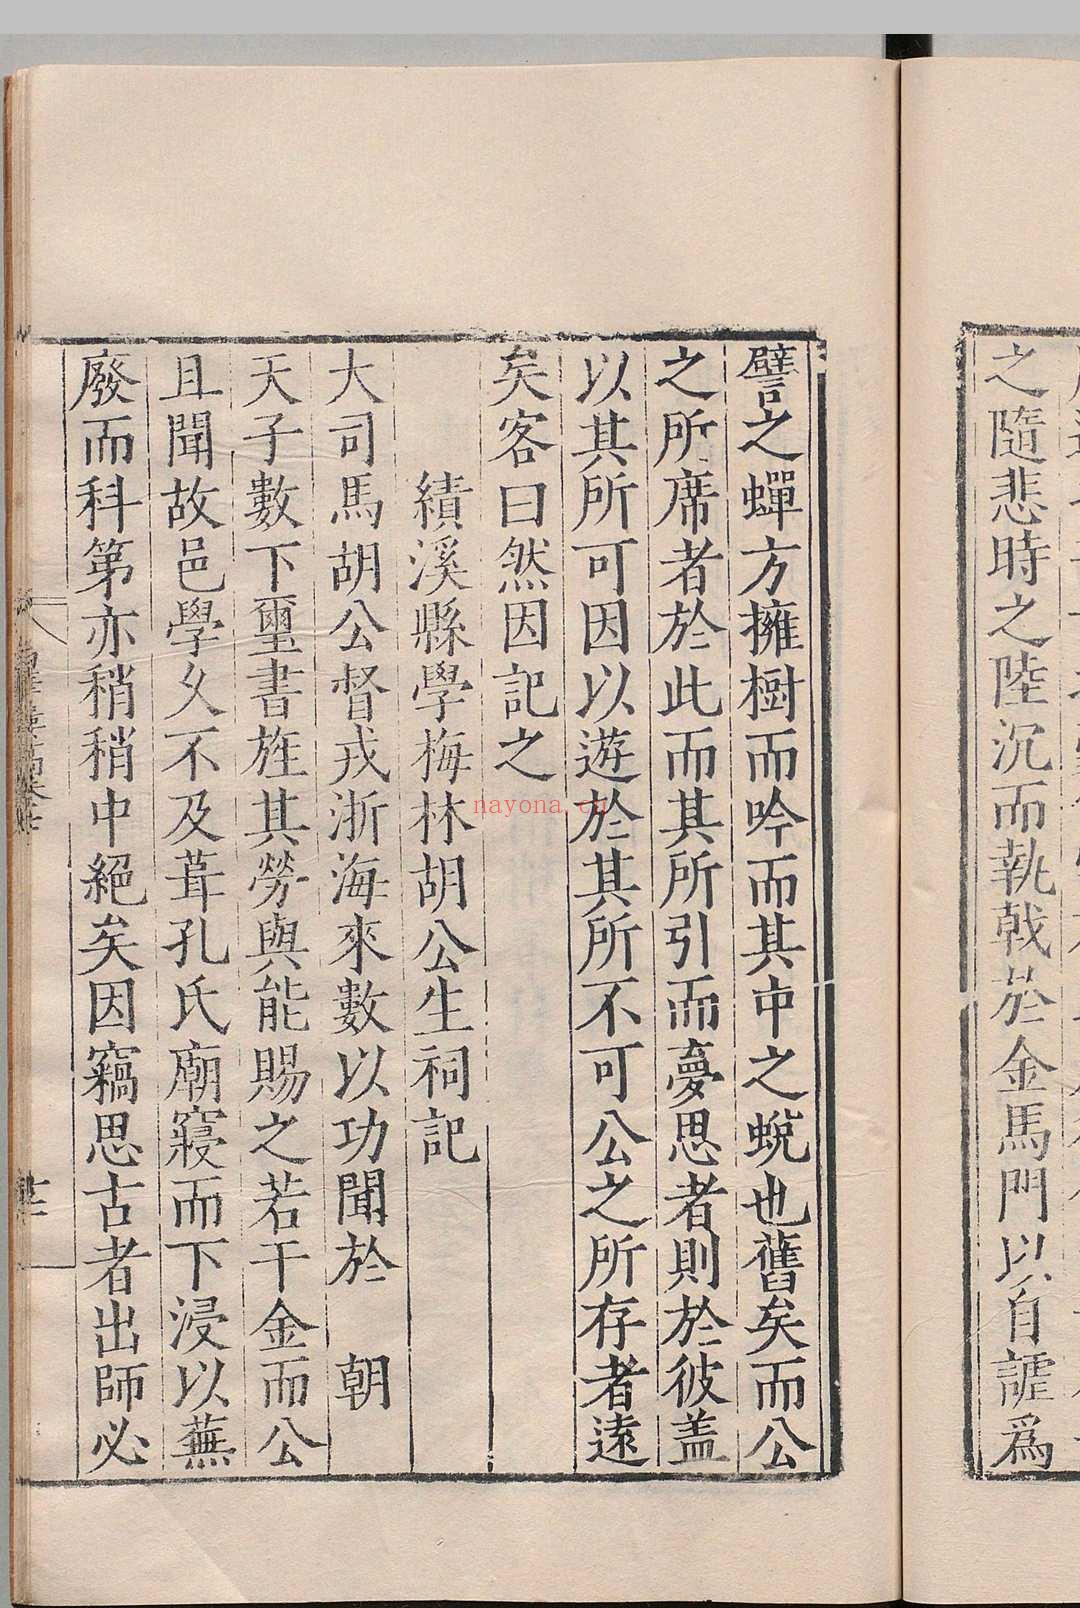 之隨悲時之陸沉而執戟於金馬門以自謔爲
譬之蟬方擁樹而吟而其中之蛻也舊矣而公
之所席者於此而其所引而夢思者則於彼盖
以其所可因以遊於其所不可公之所存者遠
矣客曰然因記之
績溪縣學梅林胡公生祠記
大司馬胡公督戎浙海來數以功聞於 朝
天子數下璽書旌其勞與能賜之若干金而公
且聞故邑學久不及葺孔氏廟寢而下浸以蕪
廢而科第亦稍稍中絕矣因竊思古者出師必
nayona.cn